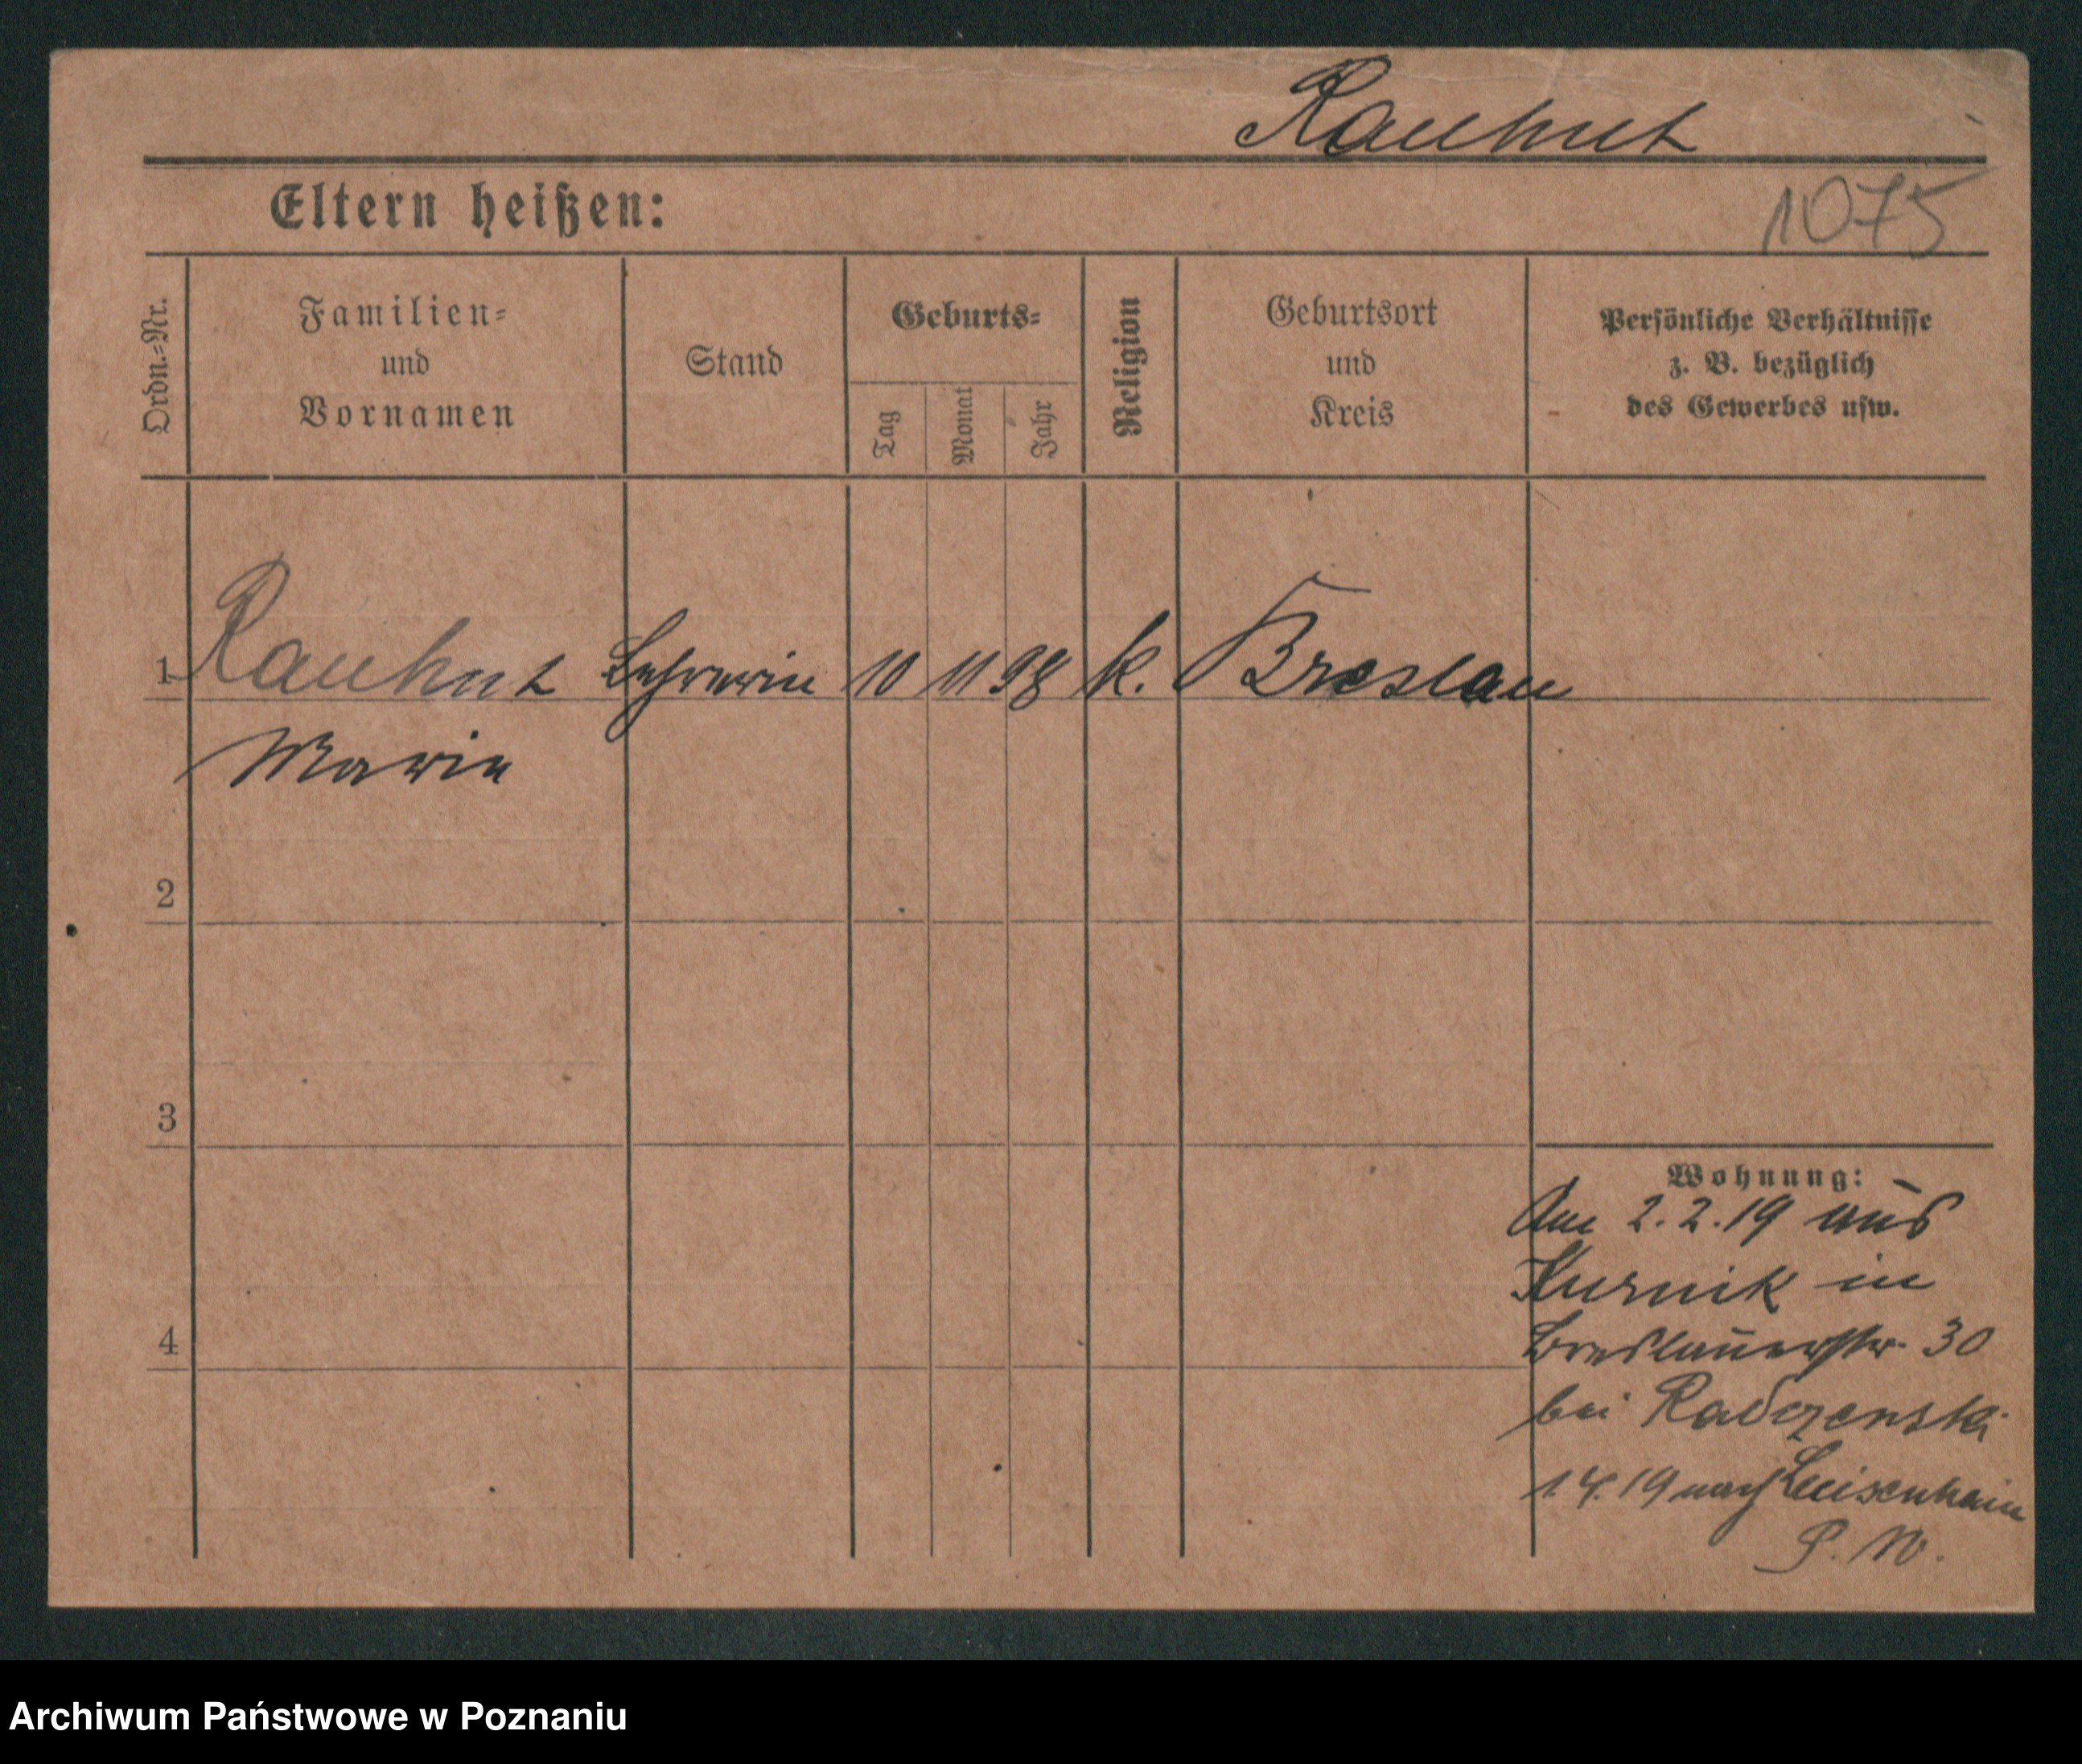 Rauhut
Eltern heißen:
1075
Ordn.-Nr.
Familien-
und
Vornamen
Stand
Geburts-
Tag
Monat
Jahr
Religion
Geburtsort
und
Kreis
Persönliche Verhältnisse
z. B. bezüglich
des Gewerbes usw.
1 Rauhut Lehrerin 10 11 98 k. Breslau
Marie
2
3
4
Wohnung:
Am 2.2.19 aus
Kurnik in
Breslauerstr. 30
bei
1.4.19 nach Luisenhain
P. W.
Archiwum Państwowe w Poznaniu